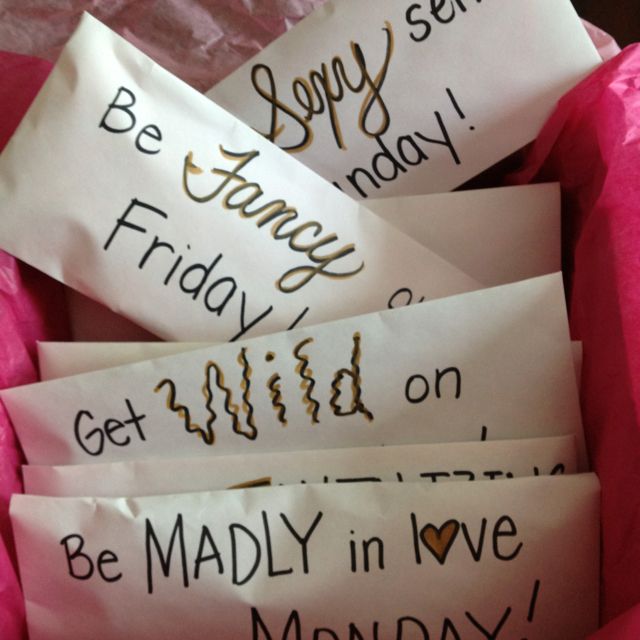 Sexy
Be Fancy
Friday!
Get Wild on
Be MADLY in love
MONDAY!